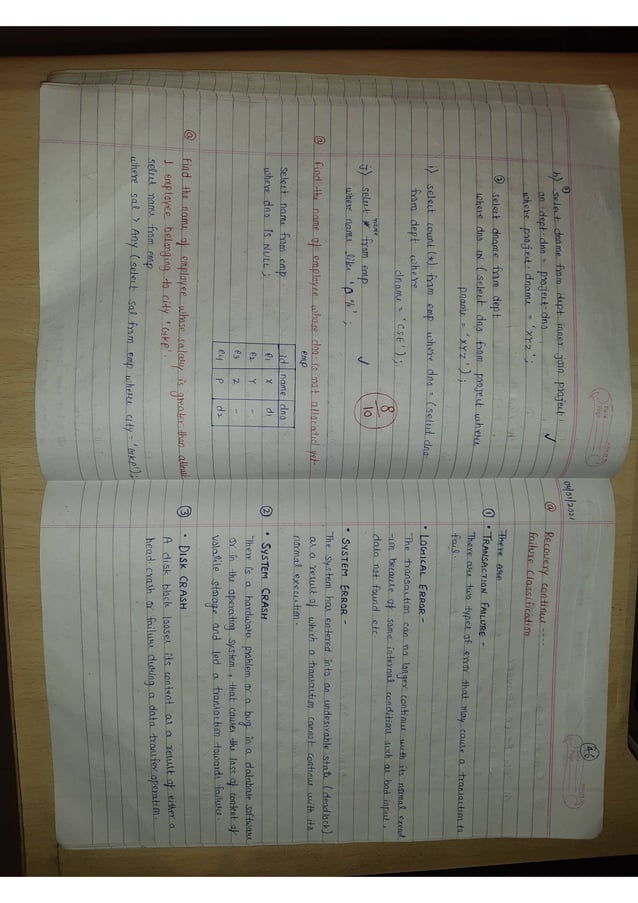 h) ① select dname from dept inner join project
on dept.dno = project.dno
where project.dname = 'XYZ';
② select dname from dept
where dno IN (select dno from project where
pname = 'XYZ');
i) select count(*) from emp where dno = (select dno
from dept where
dname = 'CSE');
j) select * from emp
name
where name like 'P%';
8/10
@ find the name of employee whose dno is not allocated yet.
select name from emp
where dno Is NULL;
emp
id name dno
e1 X d1
e2 Y -
e3 Z -
e4 P d2
@ find the name of employee whose salary is greater than atleast
1 employee belonging to city 'GKP'.
select name from emp
where sal > Any (select sal from emp where city = 'GKP');
46
04/01/2021
@ Recovery continue ----
Failure Classification
There are
① • TRANSACTION FAILURE -
There are two types of error that may cause a transaction to
fail.
• LOGICAL ERROR -
The transaction can no longer continue with its normal execut
-ion because of some internal conditions such as bad input,
data not found etc.
• SYSTEM ERROR -
The system has entered into an undesirable state (deadlock)
as a result of which a transaction cannot continue with its
normal execution.
② • SYSTEM CRASH
There is a hardware problem or a bug in a database software
or in the operating system, that causes the loss of content of
volatile storage and led a transaction towards failure.
③ • DISK CRASH
A disk block looses its content as a result of either a
head crash or failure during a data transfer operation.